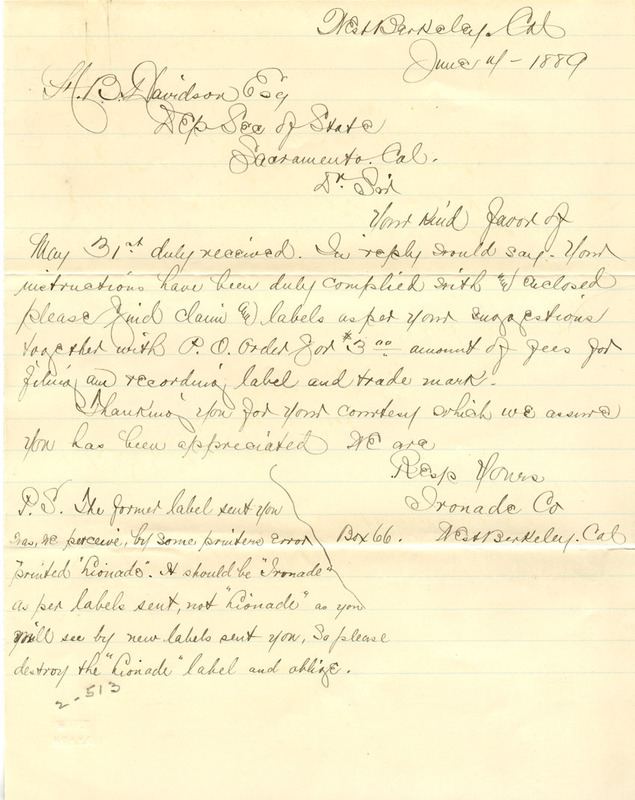 West Berkeley, Cal
June 4 - 1889
H. B. Davidson Esq
Dep Sec of State
Sacramento. Cal.
Dr. Sir
Your kind favor of
May 31st duly received. In reply would say - Your
instructions have been duly complied with & enclosed
please find claim & labels as per your suggestions
together with P. O. Order for $3.00 amount of fees for
filing and recording label and trade mark.
Thanking you for your courtesy which we assure
you has been appreciated We are
Resp Yours
Ironade Co
Box 66. West Berkeley. Cal
P. S. The former label sent you
was, we perceive, by some printers error
printed "Lionade". It should be "Ironade"
as per labels sent, not "Lionade" as you
will see by new labels sent you, So please
destroy the "Lionade" label and oblige.
2-513